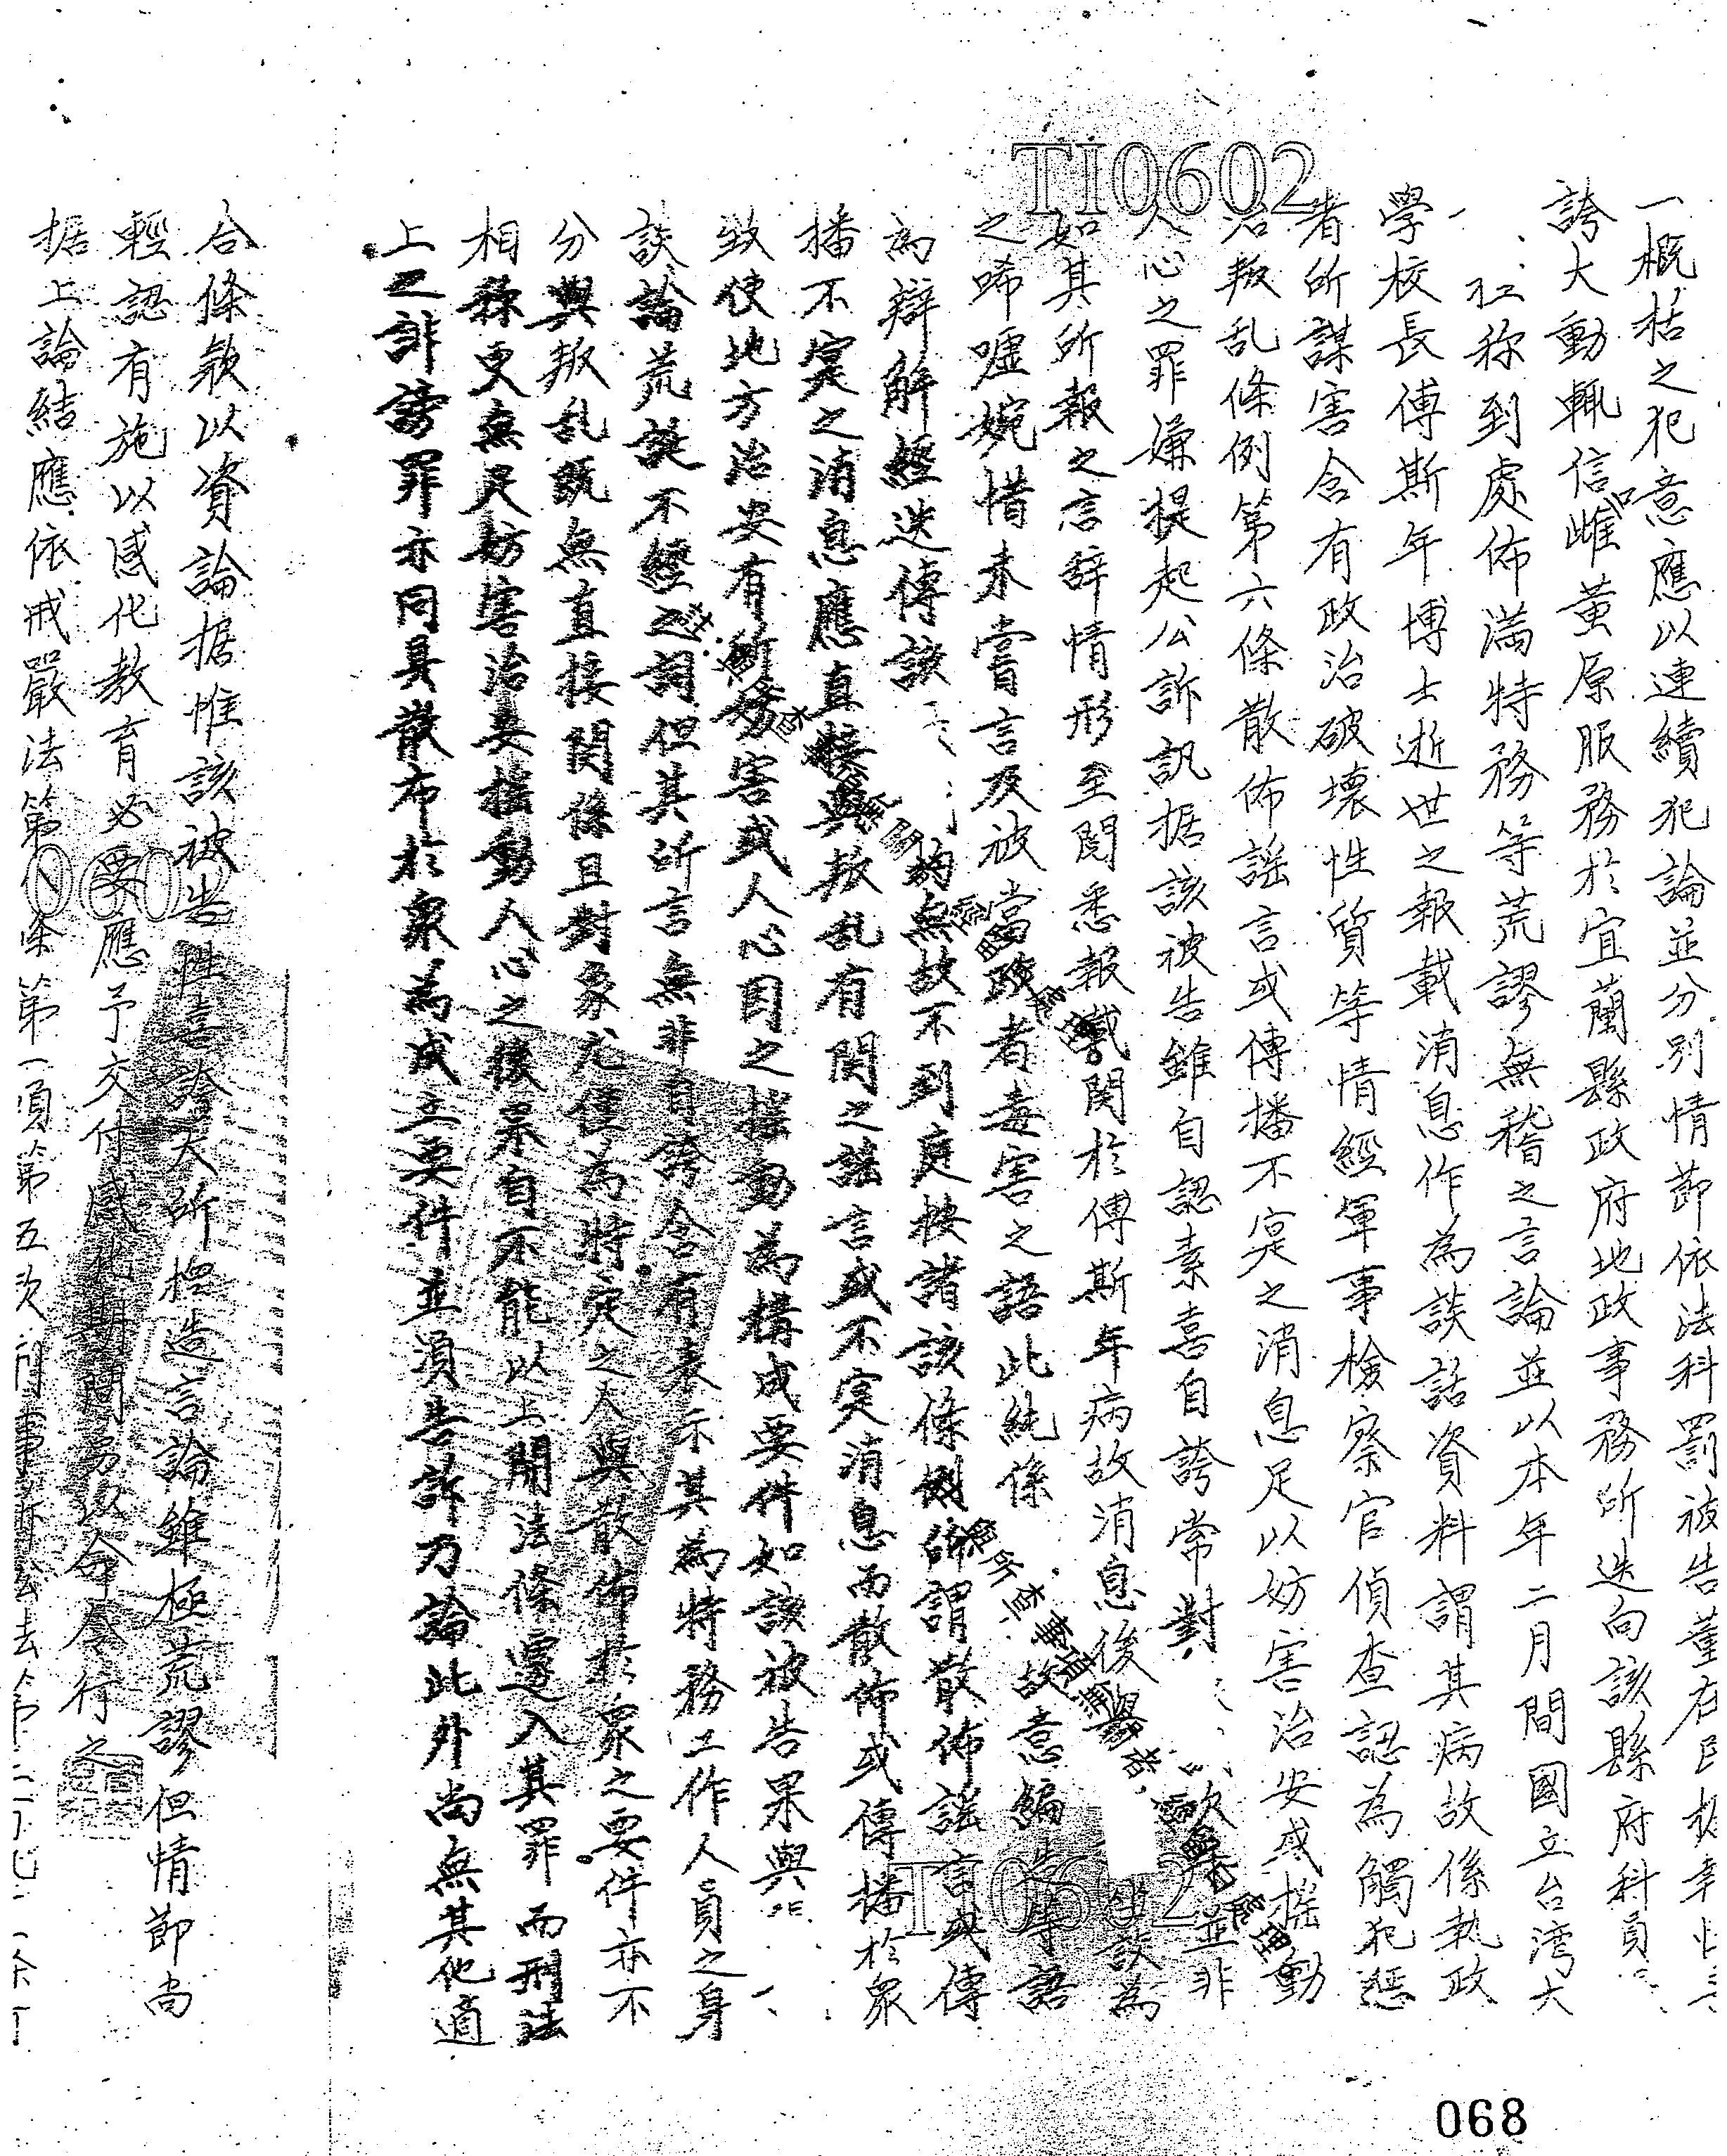 TI0602
一概括之犯意應以連續犯論並分別情節依法科罰被告董在民
誇大動輒信口雌黃原服務於宜蘭縣政府地政事務所迭向該縣府科員
誑称到處佈滿特務等荒謬無稽之言論並以本年二月間國立台湾大
學校長傅斯年博士逝世之報載消息作為談話資料謂其病故係執政
者所謀害含有政治破壞性質等情經軍事檢察官偵查認為觸犯懲
治叛乱條例第六條散佈謠言或傳播不实之消息足以妨害治安或搖動
人心之罪嫌提起公訴訊据該被告雖自認素喜自誇常對
如其所報之言辞情形至閱悉報載關於傅斯年病故消息後與 談為
之唏噓婉惜未嘗言及被當政者毒害之語此純係 故意編造等語
為辯解經迭傳該 均無故不到庭按諸該條例所謂散佈謠言或傳
播不实之消息應直接與叛乱有関之謠言或不实消息而散佈或傳播於眾
致使地方治安有所妨害或人心因之搖動為構成要件如該被告果與
談論荒誕不經之詞但其所言無非自誇含有表示其為特務工作人員之身
分與叛乱既無直接関係且對象尤僅為特定之人與散佈於眾之要件亦不
相称更無足妨害治安搖動人心之後果自不能以上開法條遽入其罪而刑法
上之誹謗罪亦同具散布於眾為成立要件並須告訴乃論此外尚無其他適
合條款以資論据惟該被告性喜誇大所捏造言論雖極荒謬但情節尚
輕認有施以感化教育必要應予交付感化期間另以命令行之
据上論結應依戒嚴法第八條第一項第五次刑事訴訟法第二
0602
TI0602
068